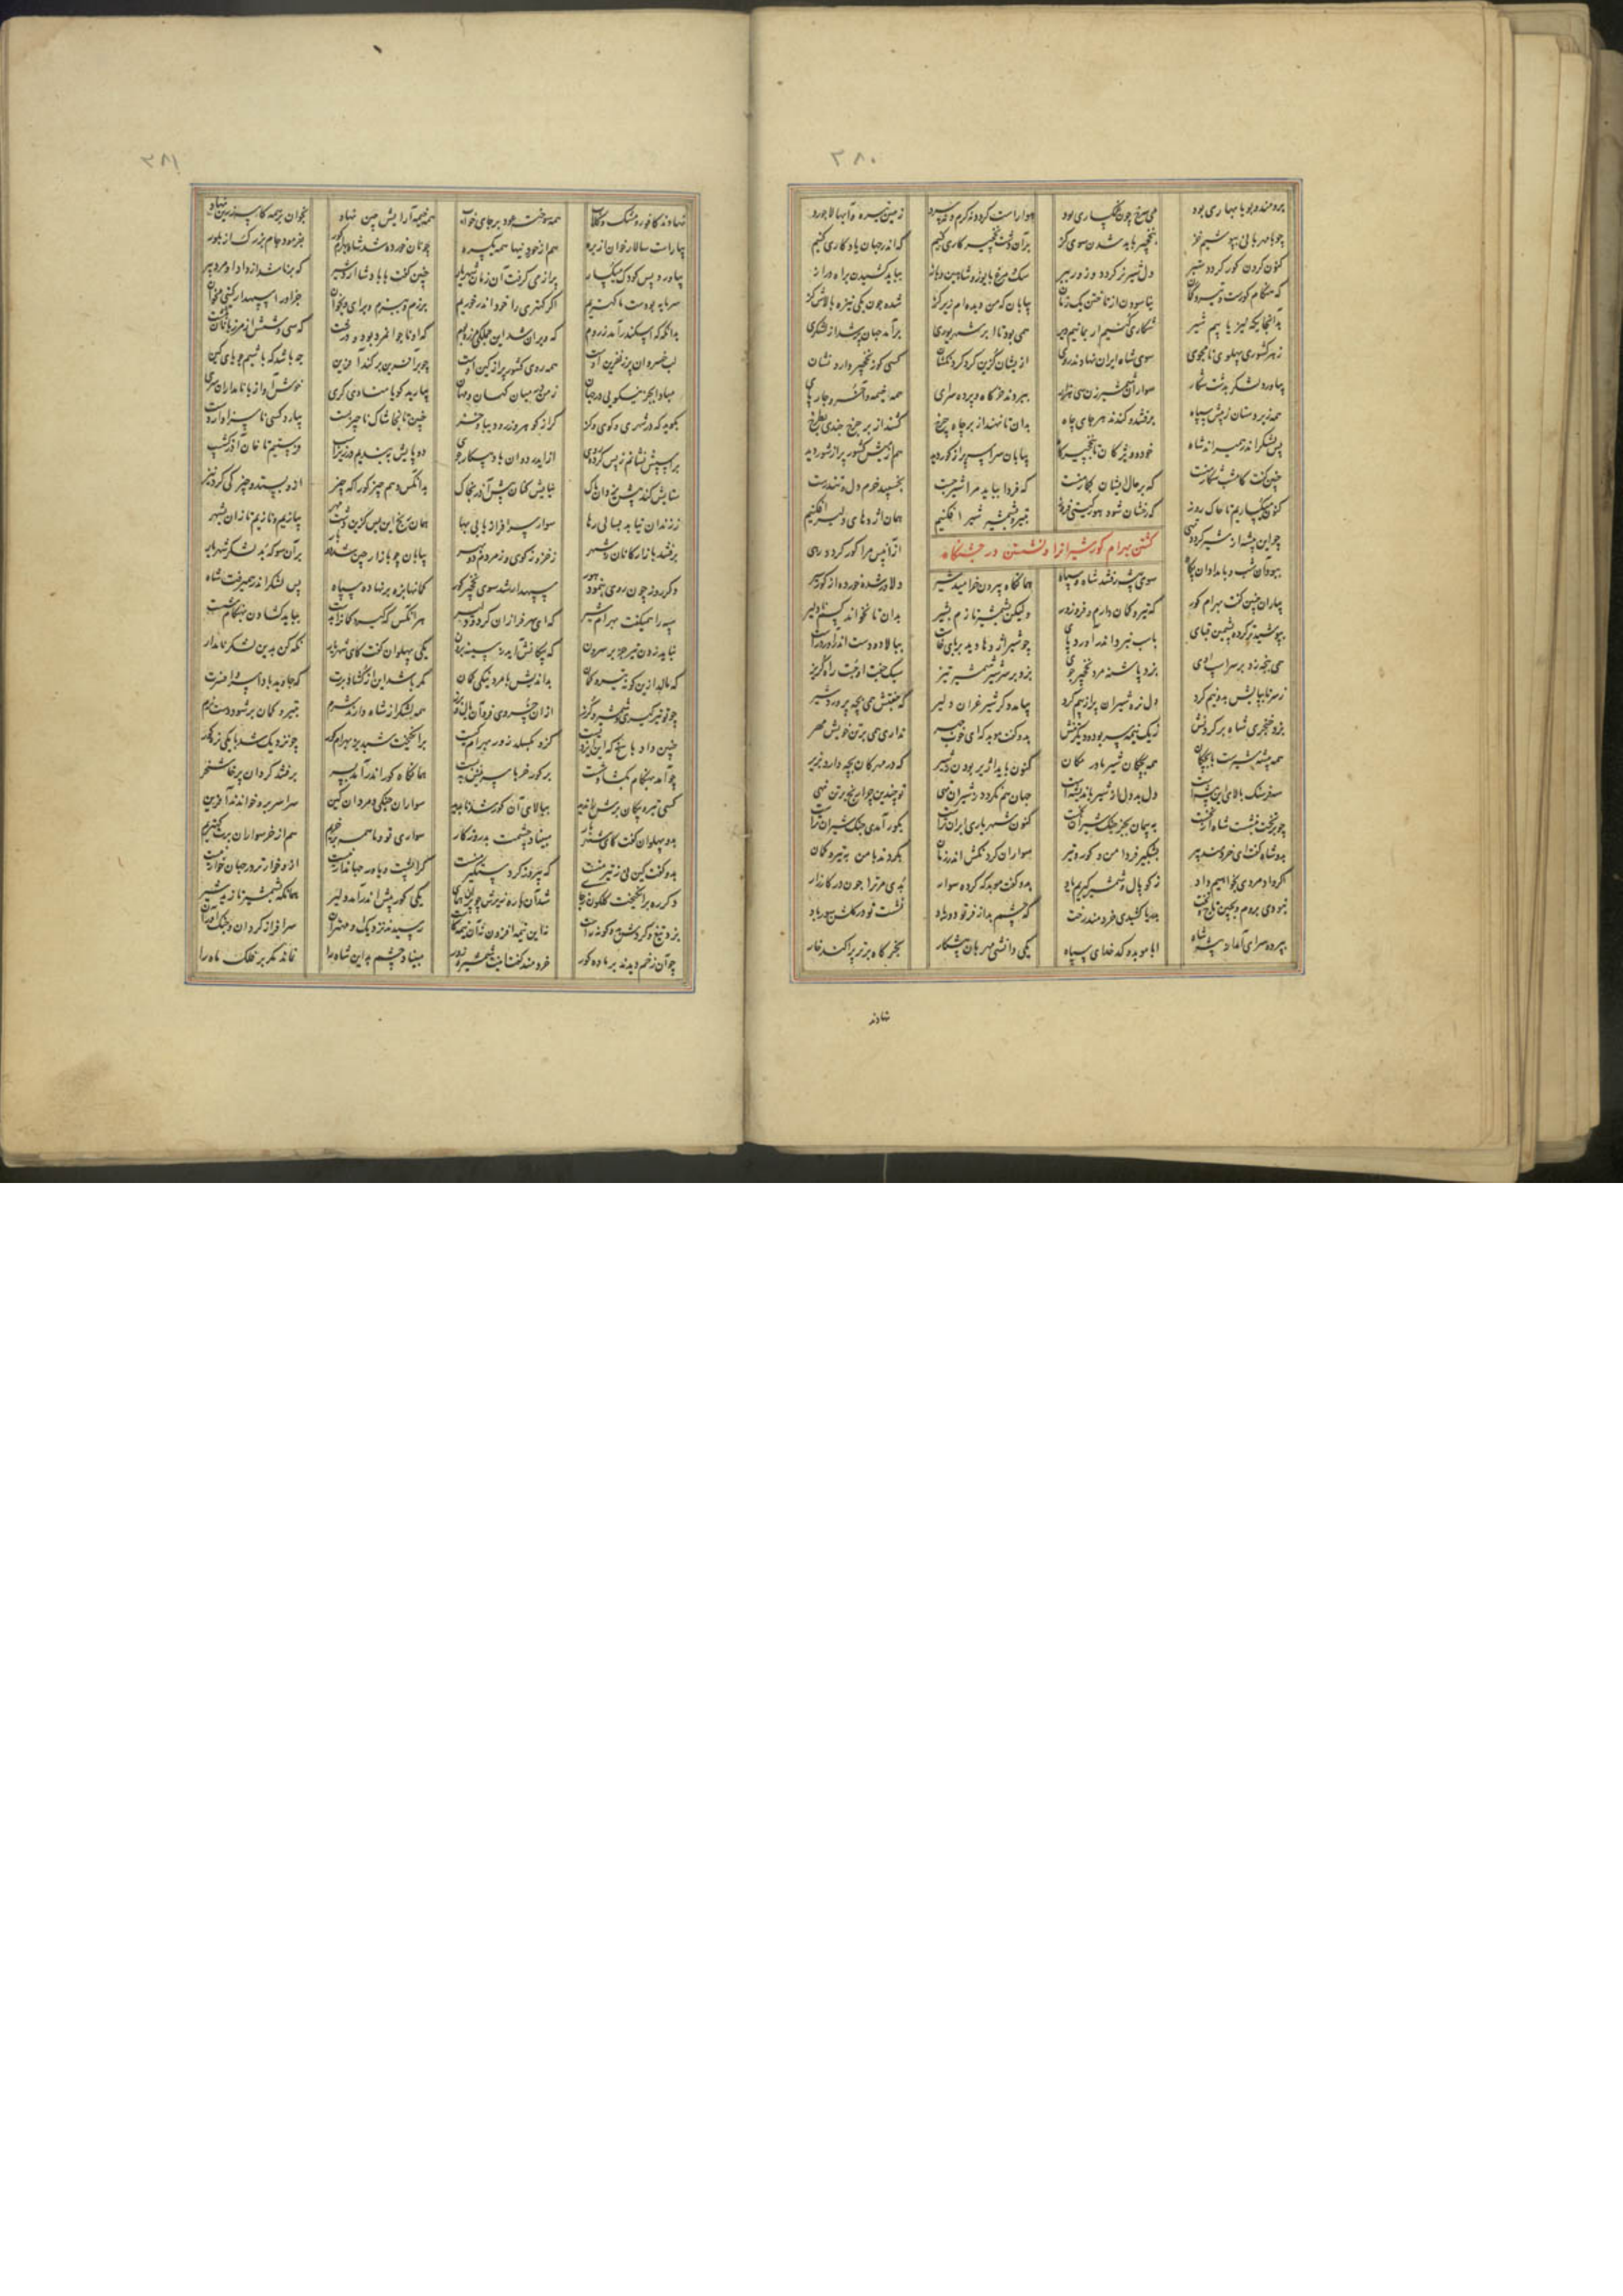 ۳۸۰
برومند و بویا بهاری بود می سرخ چون غمگساری بود هوا راست گردد نه گرم و نه سرد زمین سبزه و آبها لاجورد
چو با مهربانی بپوشیم خز بنخچیر باید شدن سوی گز بر آن دشت نخچیر کاری کنیم که اندر جهان یادگاری کنیم
کنون گردن گور گردد سطبر دل شیر نر گردد و زور ببر سگ و مرغ با یوز و شاهین و باز بباید کشیدن براه دراز
که هنگام گورست و تیر و کمان نیاسودن از تاختن یک زمان بیابان که من دیده ام زیر گز شده چون یکی نیزه بالاش گز
بدانجایگه نیز یابیم شیر شکاری کنیم ار بمانیم دیر همی بود تا ابر شهریوری برآمد جهان پر شد از لشکری
ز هر کشوری پهلوی نامجوی سوی شاه ایران نهادند روی از ایشان گزین کرد گردنکشان کسی کو ز نخچیر دارد نشان
بیاورد لشکر بدشت شکار سواران شمشیرزن سی هزار ببردند خرگاه و پرده سرای همه خیمه و آخر و چارپای
همه زیردستان ز پیش سپاه برفتند و کندند هر جای چاه بدان تا نهند از بر چاه چرخ کنند از بر چرخ چندی بطرخ
پس لشکر اندر همی راند شاه خود و ویژگان تا بنخچیرگاه بیابان سراسر پر از گور دید همه بیش کشور پر از شور دید
چنین گفت کامشب شکارست که بر حال ایشان که فردا بباید مرا شیر جست بخسپید خرم دل و تندرست
کنون میگساریم تا چاک روز که رخشان شود هور گیتی فروز بتیر و بشمشیر شیر افکنیم همان اژدهای دلیر افکنیم
چو این بیشه از شیر گردد تهی از آن پس مرا گور گردد رهی
کشتن بهرام گور شیرانرا و نشستن در جشنگاه
ببود آن شب و بامدادان پگاه سوی بیشه رفتند شاه و سپاه همانگاه بیرون خرامید شیر دلاور شده خورده از گور سیر
بیاران چنین گفت بهرام گور که تیر و کمان دارم و فر و زور ولیکن بشمشیر تازم بشیر بدان تا نخوانند کسم نا دلیر
بپوشید تر کرده پشمین قبای باسب نبرد اندر آورد پای چو شیر اژدها دید بر پای خاست ببالا دو دست اندر آورد راست
همی پنجه زد بر سر اسپ اوی بزد پاشنه مرد نخچیر جوی بزد بر سر شیر شمشیر تیز سبک جفت او جست راه گریز
ز سر تا میانش بدو نیم کرد دل نره شیران پر از بیم کرد بیامد دگر شیر غران دلیر که جفتش همی بچه پرورد شیر
بزد خنجری شاه بر گردنش ز یک نیمه سر بود و دیگر تنش بدو گفت موبد که ای خوب چهر نداری همی بر تن خویش مهر
همه بیشه شیرست با بچگان همه بچگان شیر مادر مکان کنون باید ار زیر بودن دلیر که در مهرگان بچه دارد بزیر
سه فرسنگ بالای این بیشه است دل بددل از شیر با اندیشه است جهان هم نگردد ز شیران تهی تو چندین چرا رنج بر تن نهی
چو بر تخت بنشست شاه از نخست به پیمان بجز جنگ شیران نجست کنون شهریاری ایران تراست بگور آمدی جنگ شیران چراست
بدو شاه گفت ای خردمند پیر بشبگیر فردا من و گور و تیر سواران گردنکش اندر زمان نکردند با من به تیر و کمان
اگر داد مردی بخواهیم داد ز کوپال و شمشیر گیریم یاد بدو گفت موبد که گر ده سوار بدی مر ترا چون در کارزار
نبودی بروم و بچین تاج و تخت بدریا کشیدی خردمند رخت که چشم بد از فر تو دور باد نشست تو در گلشن و سور باد
بپرده سرای آمد از بیشه شاه ابا موبد و کدخدای سپاه یکی دانشی مهربان پیشکار بخرگاه بر تر پراکند خار
نهادند
۳۸۱
نهادند کافور و مشک و گلاب همه سوخت عود بر جای خواب همه خیمه آرایش چین نهاد بخوان بر همه کاسه زرین نهاد
بیاراست سالار خوان از بره هم از خوردنیها همه یکسره چو نان خورده شد شاه بهرام گور بفرمود جام بزرگ از بلور
بیاورد پس کودک میگسار پر از می گرفت آن زمان شهریار چنین گفت بابا و شاه اردشیر که برنا شد از داد او مرد پیر
سرمایه بودست ما کهتریم اگر کهتری را خود اندر خوریم برزم و ببزم و برای و بخوان جز او را سپهدار گیتی مخوان
بدانگه که اسکندر آمد ز روم که ویران شد این جنگی مرز و بوم که او ناجوانمرد بود و درشت که سی و شش از مرزبانان بکشت
لب خسروان پر ز نفرین اوست همه روی کشور پر از کین اوست چو بر آفریدون کنند آفرین چه باشد که باشیم جویای کین
مبادا بجز نیکویی در جهان ز من در میان کهان و مهان بیارید گویا منادی گری خوش آواز با نامداران سری
بگوید که در شهر و کوی و گذر گر از گوهر و زر و دیبا و خز چنین تا بخاشاک ناچیز پست بیازد کسی ناسزاوار دست
بر اسپش نشانم ز پس کرده روی از ایدر دوان با دو پیکارجوی دو پایش ببندیم در زیر اسپ فرستیم تا خان آذرگشسب
ستایش کند پیش یزدان پاک نیایش کنان پیش آذر بخاک بدانکس دهم چیز کو را که چیز از و بستده چیز کی کرد تیز
ز زندان نیابد بسالی رها سوار سرافراز یا بی بها همان رنج این بس گزین دشت بهر بیازیم و نازیم نازان بشهر
برفتند بازارگانان شهر ز خز و ز کوی و ز مردم دو بهر بیابان چو بازار چین شد ز بار بر آن سو که بد لشکر شهریار
دگر روز چون روی بنمود هور سپهدار شد سوی نخچیر گور کمانها بزه بر نهاده سپاه پس لشکر اندر همیرفت شاه
سپه را همیگفت بهرام شیر که ای سرفرازان گرد دلیر هر آنکس که گیرد کمانرا بدست بباید گشادن بهنگام شست
نباید زدن تیر جز بر سرون که پیکانش آید ز سینه برون یکی پهلوان گفت کای شهریار نگه کن بدین لشکر نامدار
که ماند ازین گونه تیر و کمان بد اندیش یا مرد نیکی گمان مگر باشد این از گشاد برت که جاوید بادا سر افسرت
چو تو تیر گیری و شمشیر و گرز ازان خسروی فر و آن بال و برز همه لشکر از شاه دارند شرم به تیر و کمان بر شود دست نرم
چنین داد پاسخ که این ایزدیست کزو بگسلد زور بهرام چیست برانگیخت شبدیز بهرام گور چو نزدیک شد با یکی نره گور
چو آمد بهنگام بگشاد شست بر گور خر با سرینش ببست همانگاه گور اندر آمد بسر برفتند گردان پرخاشخر
کسی تیر و پیکان برش ناپدید ببالای آن گور شد ناپدید سواران جنگی و مردان کین سراسر برو خواندند آفرین
بدو پهلوان گفت کای شهریار مبیناد چشمت بد روزگار سواری تو و ما همه بر خریم هم از خر سواران برت کهتریم
بدو گفت کین نی ز تیر منست که پیروزگر دستگیر منست کرا پشت و یاور جهاندار نیست از و خوارتر در جهان خوار نیست
دگر ره برانگیخت گلگون ز جای شد آن باره زیرش چو پران همای یکی گور پیش اندر آمد دلیر همانگه بشمشیر یازید شیر
بزد تیغ و کردش دو گونه راست نه این نیمه افزون نه آن نیمه کاست رسیدند نزدیک او مهتران سرافراز گردان و جنگ آوران
چو آن زخم دیدند بر ماده گور خردمند گفت اینت شمشیر و زور مبیناد چشم بد این شاه را نماند مگر بر فلک ماه را